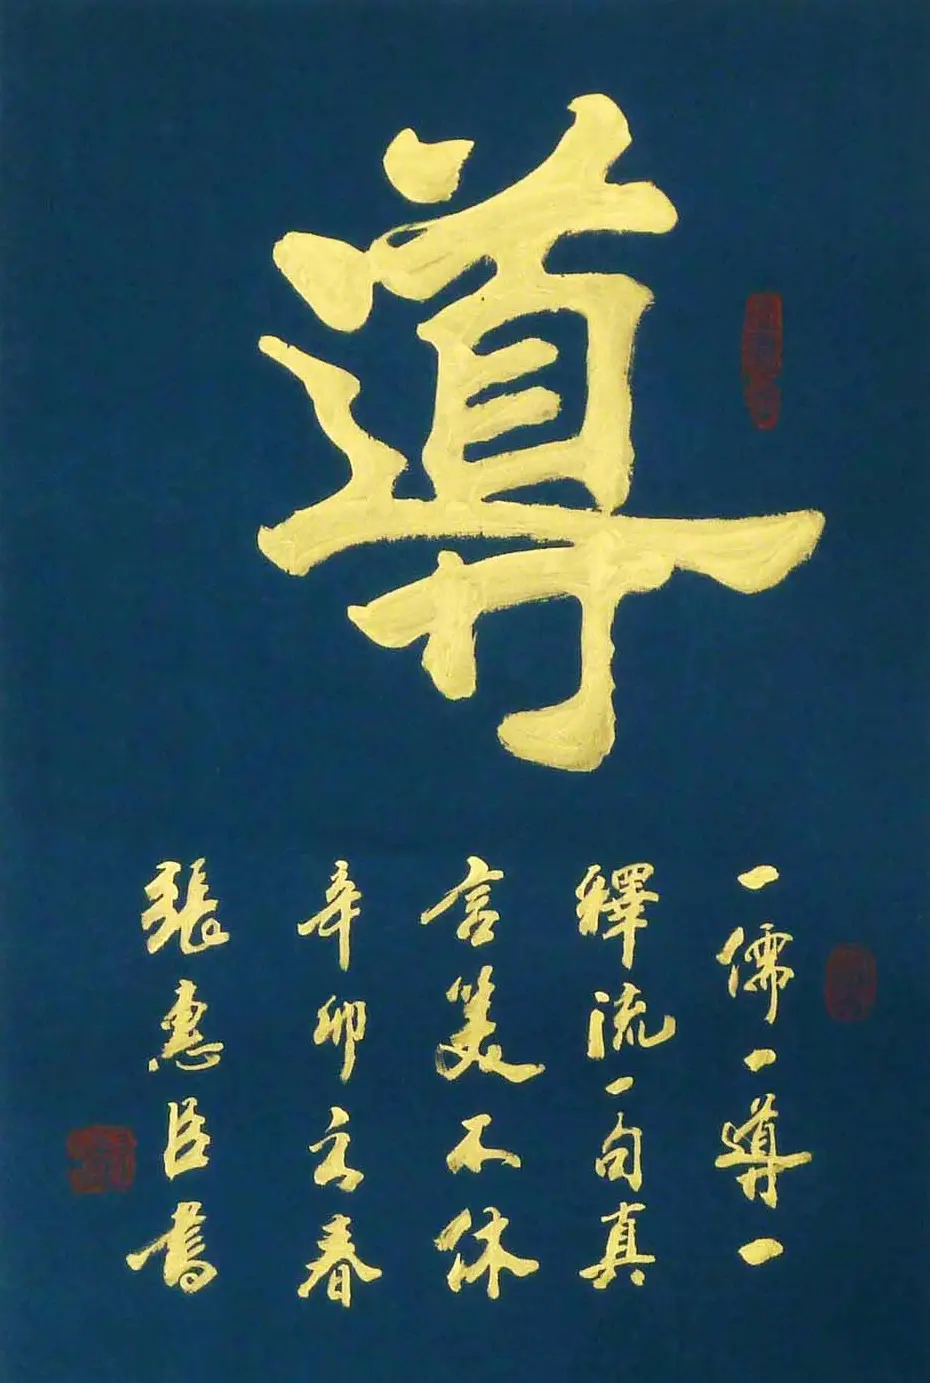 導
一儒一導一
釋流一句真
言笑不休
辛卯之春
張惠臣書